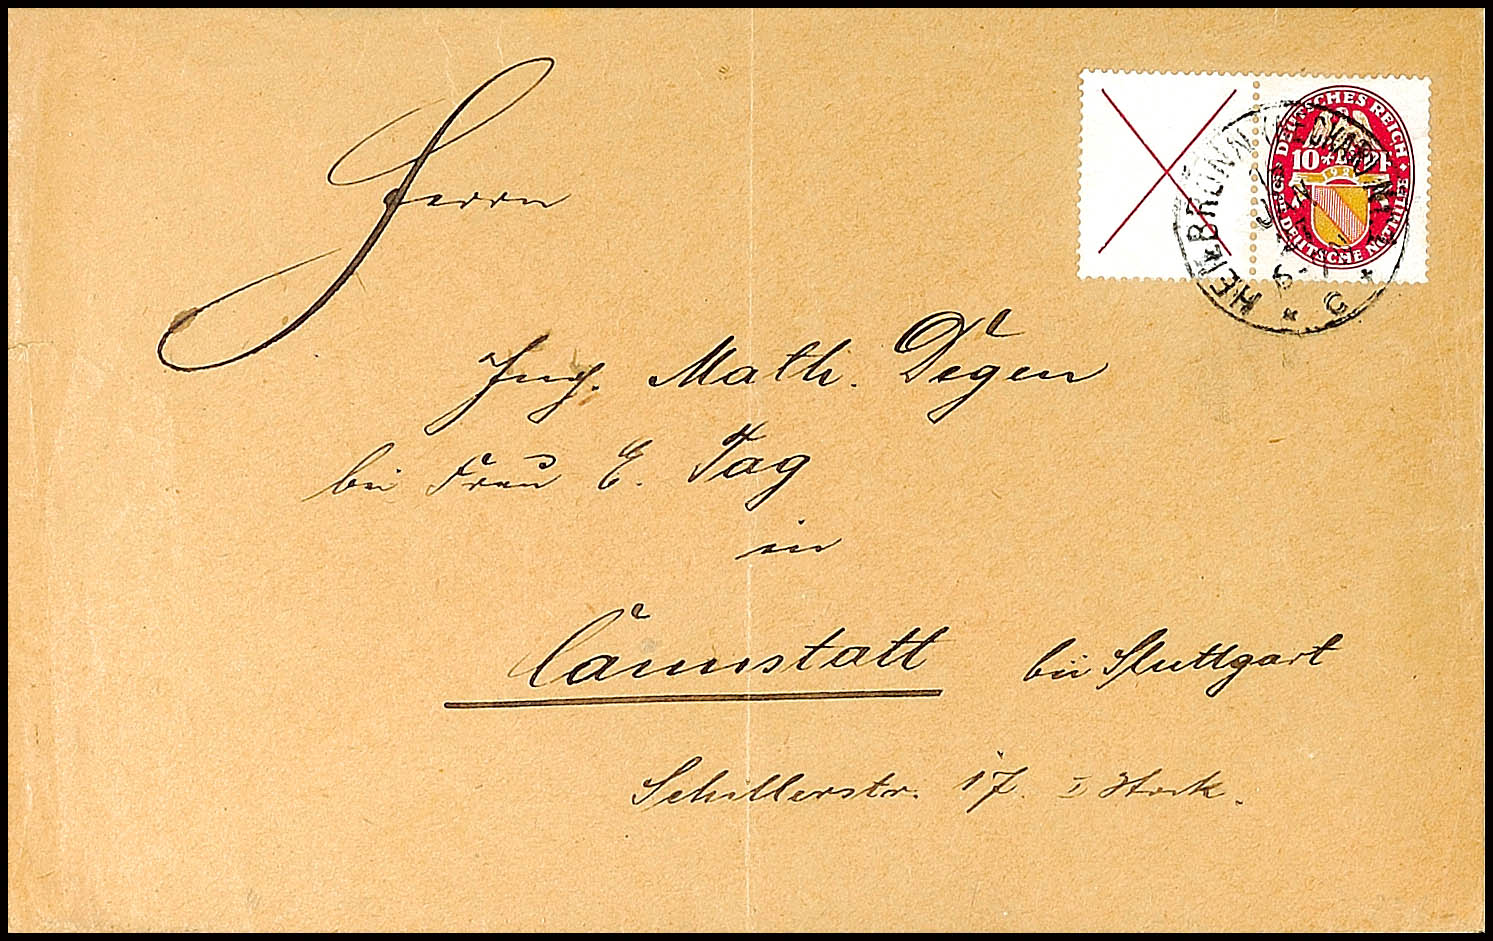 DEUTSCHES REICH
10+
DEUTSCHE NOTHILFE
HEILBRONN (NECKAR) Nr 1
Herrn
Ing. Math. Degen
bei Frau E. Tag
in
Cannstatt bei Stuttgart
Schillerstr. 17. I Stock.